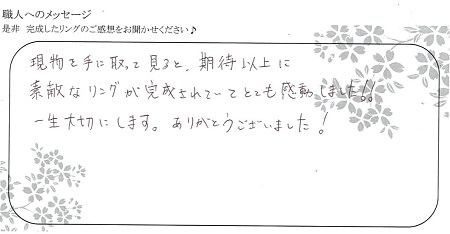 職人へのメッセージ
是非 完成したリングのご感想をお聞かせください♪
現物を手に取って見ると、期待以上に
素敵なリングが完成されていてとても感動しました!!
一生大切にします。ありがとうございました!